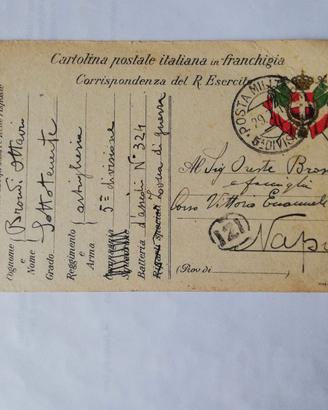 Cartolina postale italiana in franchigia
Corrispondenza del R. Esercito
Cognome
e
Nome
Brondi Ottavio
Grado
Sottotenente
Reggimento
e
Arma
artiglieria
5ª divisione
Batteria d'assedio N° 324
zona di guerra
POSTA MILIT
29
5ª DIVIS
All Sig Oreste
e famiglia
Corso Vittorio Emanuele
121
Nap
(Prov di